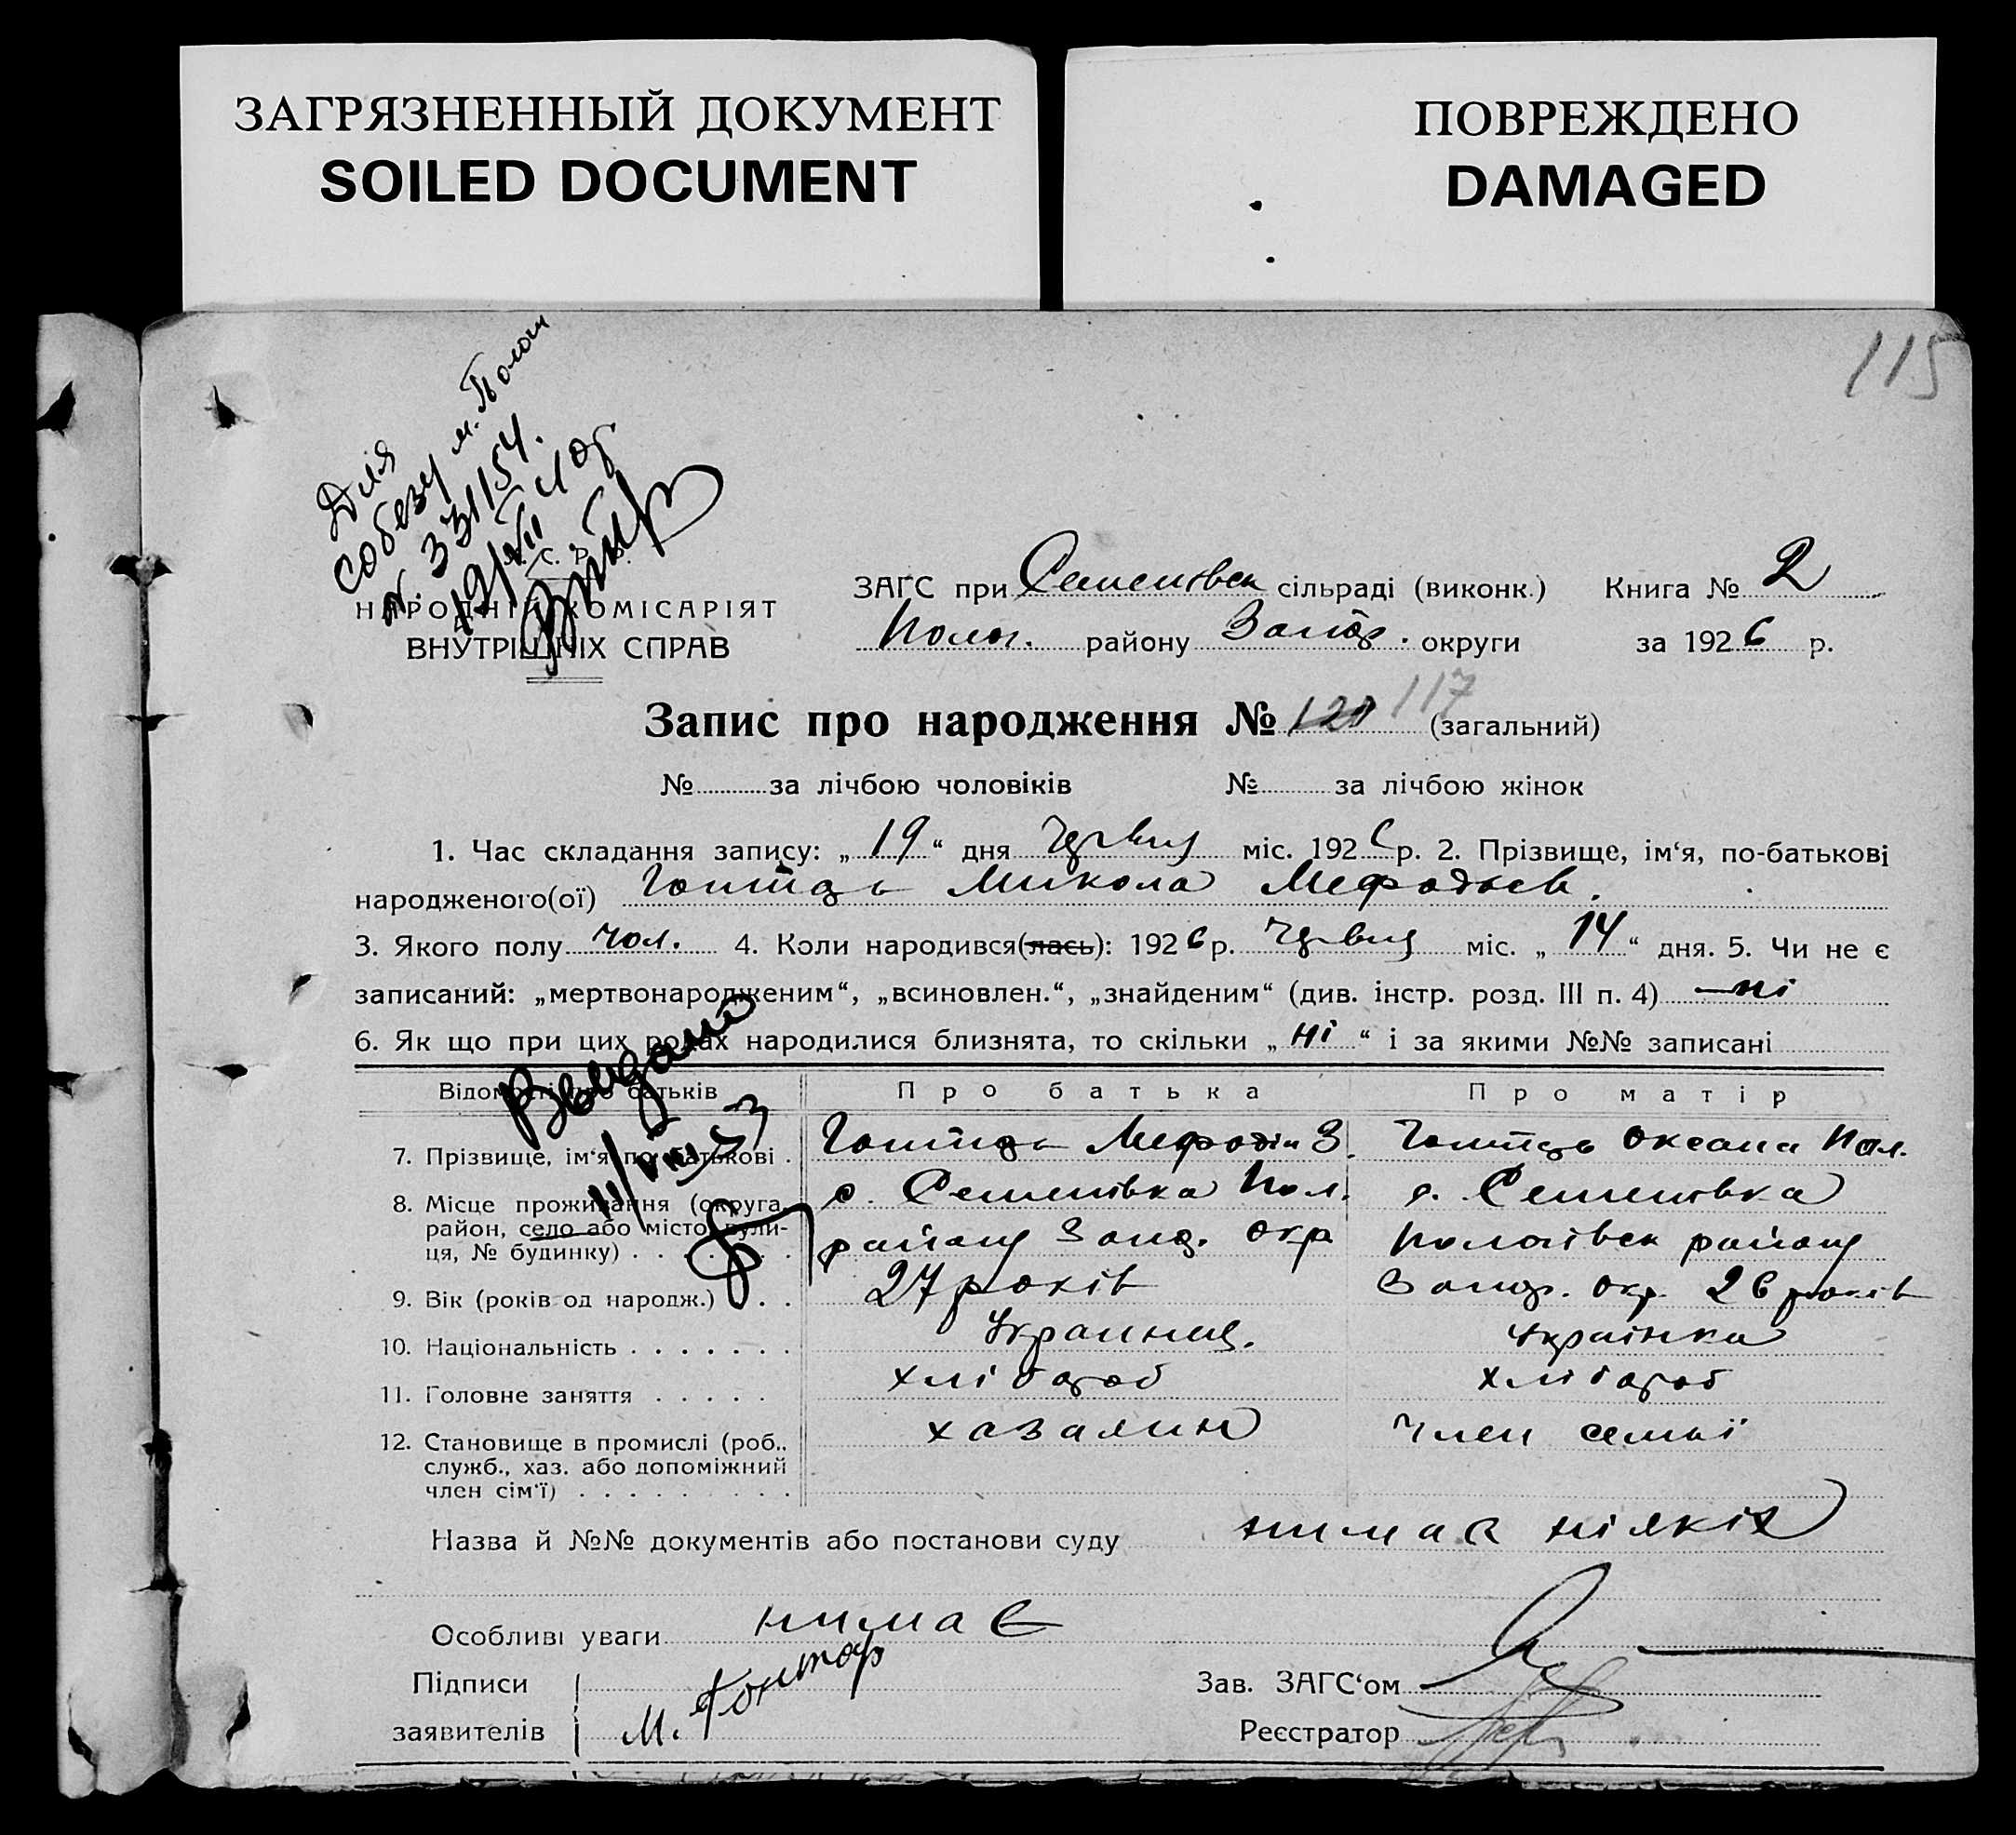 ЗАГРЯЗНЕННЫЙ ДОКУМЕНТ
SOILED DOCUMENT
ПОВРЕЖДЕНО
DAMAGED
115
Для
собезу м. Пологи
N. 331154.
19/VII
С. Р.
НАРОДНІЙ КОМІСАРІЯТ
ВНУТРІШНІХ СПРАВ
ЗАГС при Семенівск сільраді (виконк.) Книга № 2
Полог. району Запор. округи за 1926 р.
Запис про народження № 120 117 (загальний)
№ за лічбою чоловіків № за лічбою жінок
1. Час складання запису: „19“ дня червня міс. 1926 р. 2. Прізвище, ім‘я, по-батькові
народженого(ої) Гонтарь Микола Мефодьев.
3. Якого полу чол. 4. Коли народився(лась): 1926 р. червня міс. „14“ дня. 5. Чи не є
записаний: „мертвонародженим“, „всиновлен.“, „знайденим“ (див. інстр. розд. III п. 4) ні
6. Як що при цих родах народилися близнята, то скільки „ні“ і за якими №№ записані
Відомості про батьків Про батька Про матір
7. Прізвище, ім‘я, по-батькові . Гонтарь Мефодій З. Гонтарь Оксана Пал.
8. Місце проживання (округа, с. Семенівка Пол. с. Семенівка
район, село або місто, вули- району Запор. окр Пологівск району
ця, № будинку) . . . . . . . Запор. окр. 26 років
9. Вік (років од народж.) . . . 27 років
10. Національність . . . . . . . Украинец. українка
11. Головне заняття . . . . . хлібороб хлібороб
12. Становище в промислі (роб., хазаяин член семьї
служб., хаз. або допоміжний
член сім‘ї) . . . . . . . . .
Назва й №№ документів або постанови суду нимає ніяких
Особливі уваги нимає
Підписи
заявителів М. Гонтар
Зав. ЗАГС‘ом
Реєстратор